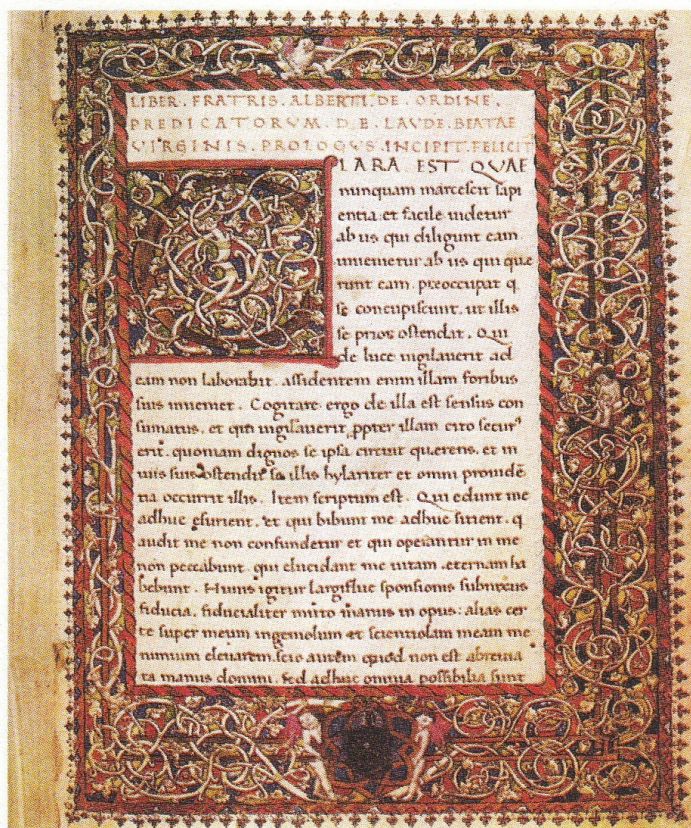 LIBER. FRATRIS. ALBERTI. DE. ORDINE.
PREDICATORVM. D E. LAVDE. BEATAE
VIRGINIS. PROLOGVS. INCIPIT. FELICIT
CLARA EST QVAE
nunquam marcescit sapi
entia. et facile uidetur
ab iis qui diligunt eam
inuenietur ab iis qui que
runt eam. preoccupat q
se concupiscunt. ut illis
se prior ostendat. Qui
de luce uigilauerit ad
eam non laborabit. assidentem enim illam foribus
suis inueniet. Cogitare ergo de illa est sensus con
sumatus. et qui uigilauerit ppter illam cito secur⁹
erit. quoniam dignos se ipsa circuit querens. et in
uiis suis ostendit se illis hylariter et omni prouidē
tia occurrit illis. Item scriptum est. Qui edunt me
adhuc esurient. et qui bibunt me adhuc sitient. q
audit me non confundetur et qui operantur in me
non peccabunt. qui elucidant me uitam eternam ha
bebunt. Huius igitur largiflue sponsionis subnixus
fiducia. fiducialiter mitto manus in opus: alias cer
te super meum ingeniolum et scientiolam meam me
nimium eleuarem. scio autem quod non est abreuia
ta manus domini. sed adhuc omnia possibilia sunt